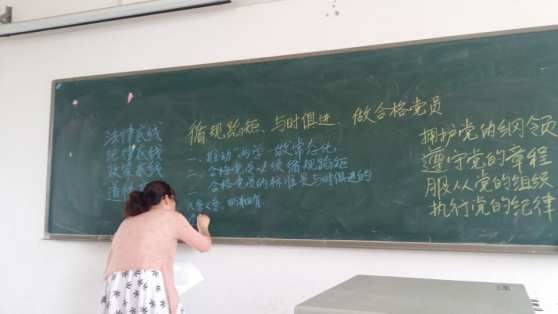 法律底线
纪律底线
政策底线
道
循规蹈矩、与时俱进、做合格党员
一、推动"两学一做"常态化
二、合格党员必须循规蹈矩
三、合格党员的标准是与时俱进的
拥护党的纲领
遵守党的章程
服从党的组织
执行党的纪律